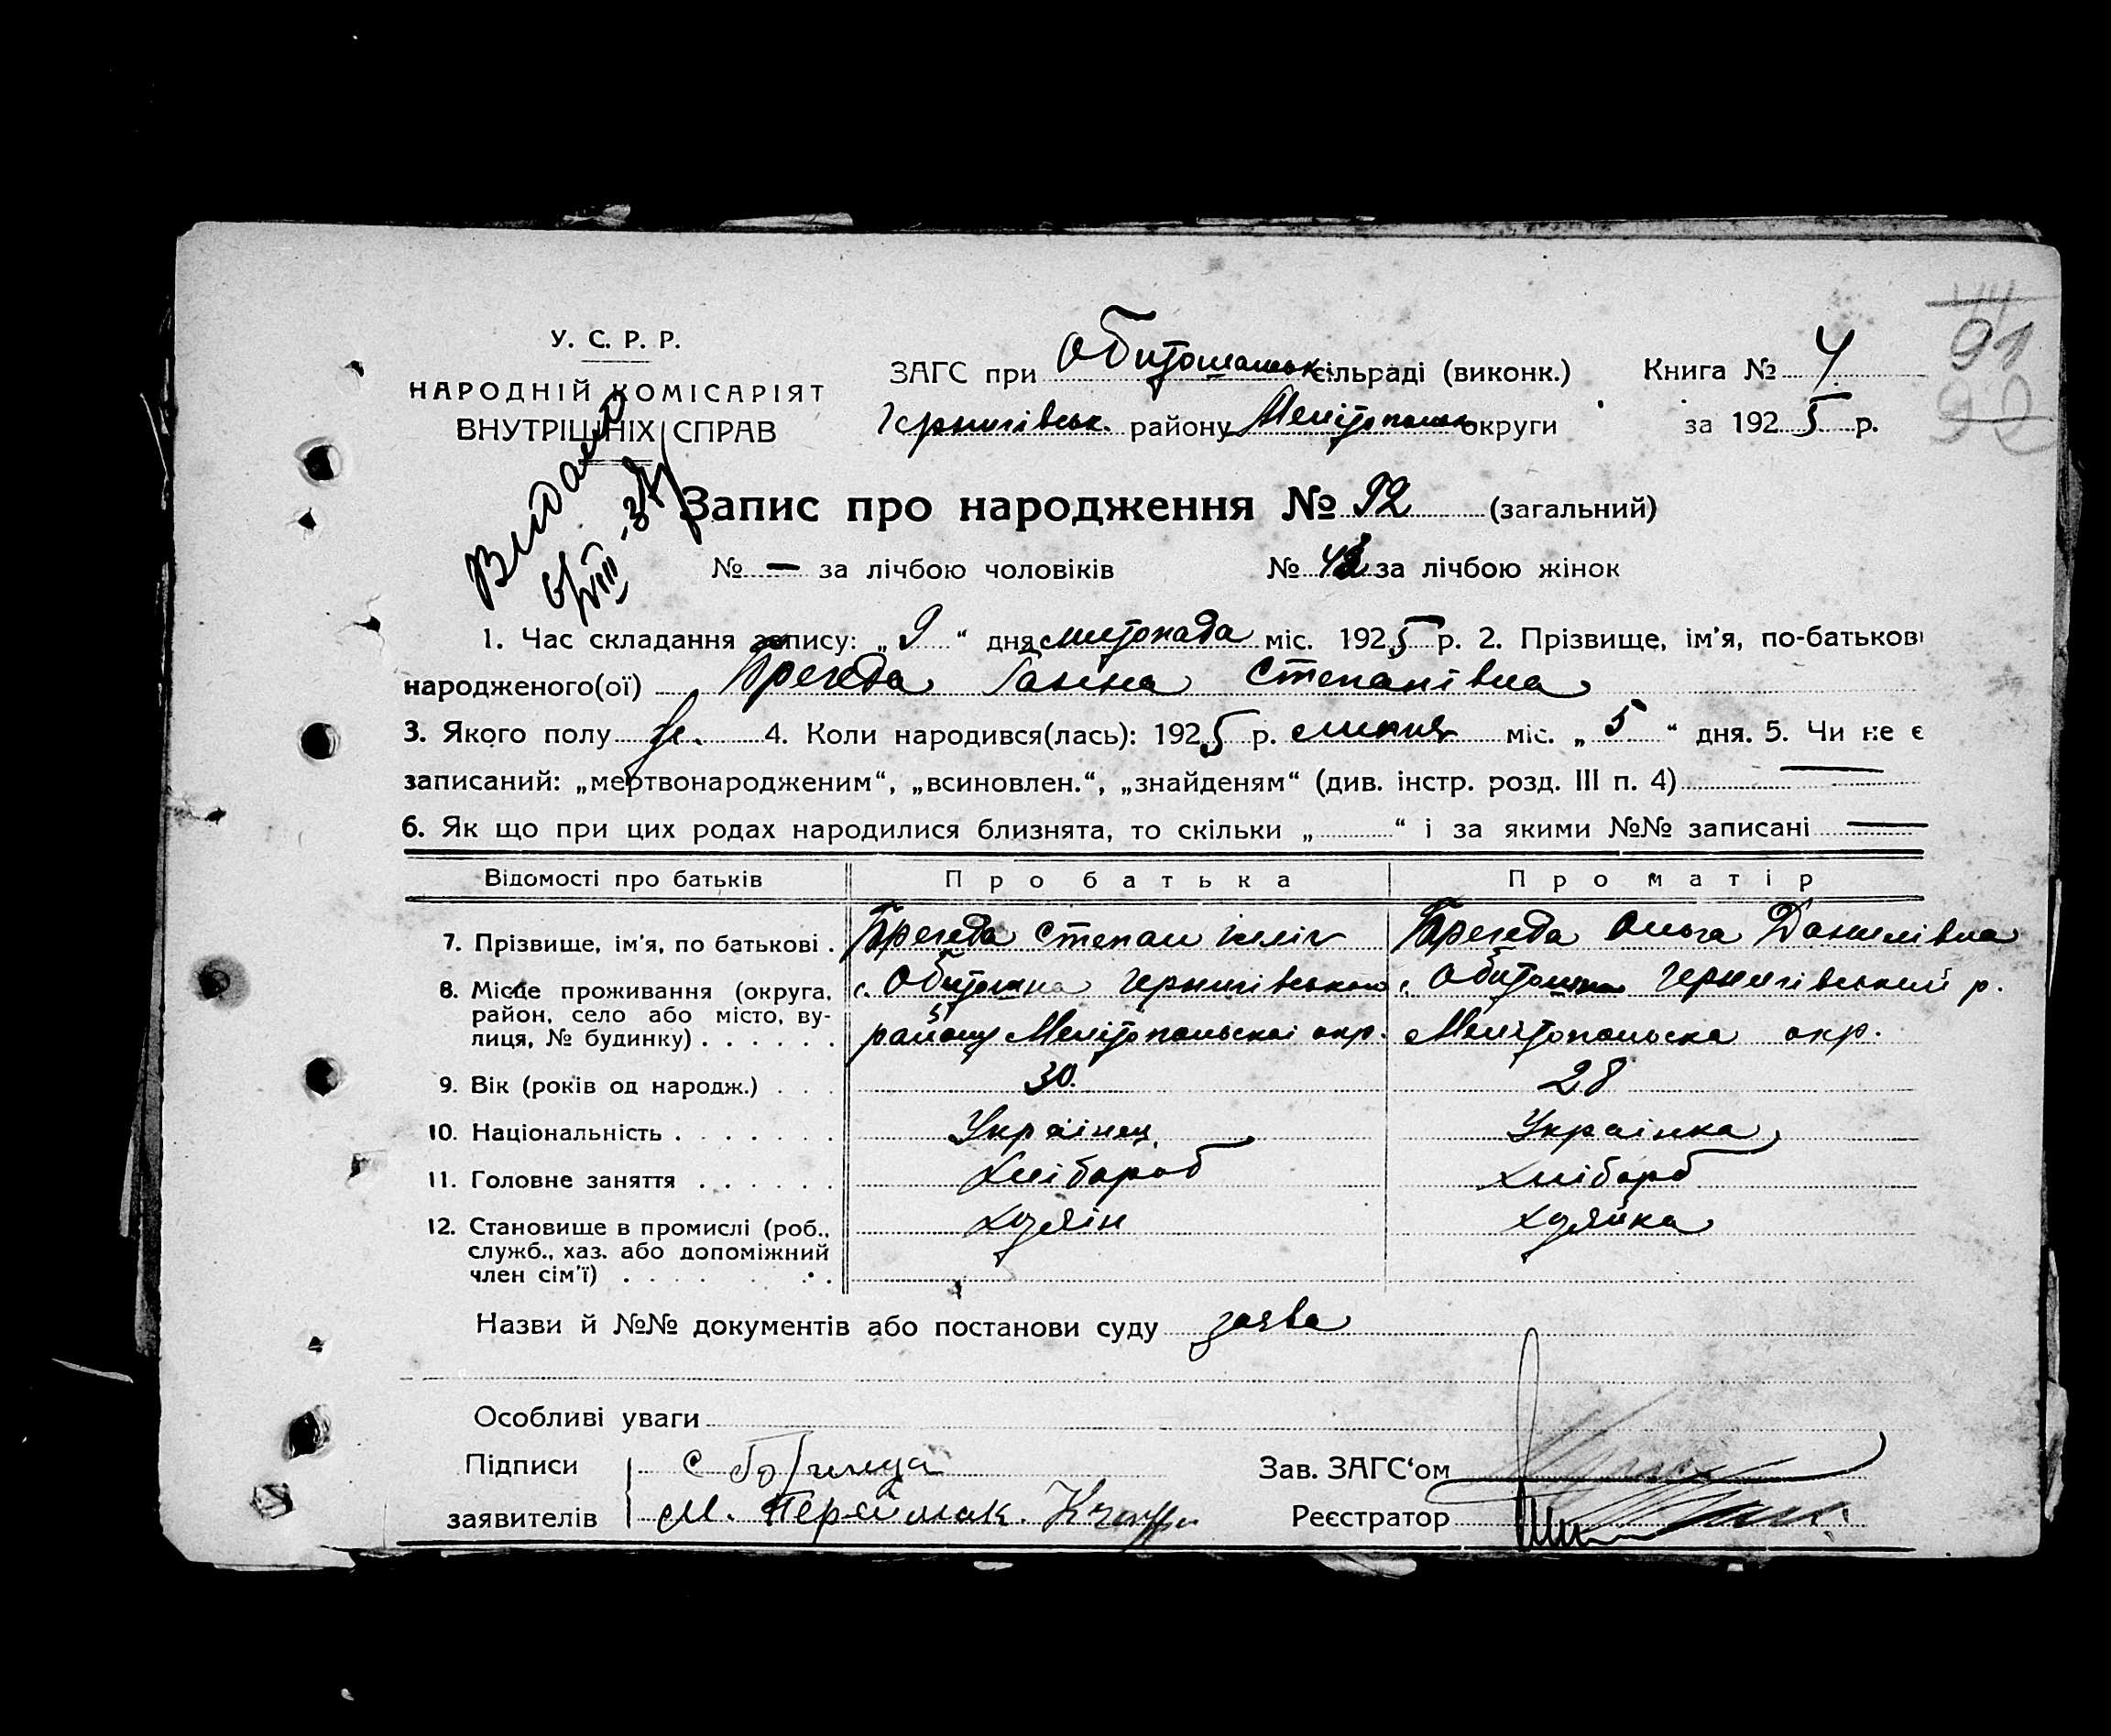 91
У. С. Р. Р.
НАРОДНІЙ КОМІСАРІЯТ
ВНУТРІШНІХ СПРАВ
ЗАГС при Обиточанськ. сільраді (виконк.) Книга № 4
Чернигівськ. району Мелітопольськ округи за 1925 р.
Видано
Запис про народження № 92 (загальний)
№ — за лічбою чоловіків № за лічбою жінок
1. Час складання запису: „ 9 “ дня листопада міс. 1925 р. 2. Прізвище, ім'я, по-батькові
народженого(ої) Ганна Степанівна
3. Якого полу ж. 4. Коли народився(лась): 1925 р. липня міс. „ 5 “ дня. 5. Чи не є
записаний: „мертвонародженим“, „всиновлен.“, „знайденям“ (див. інстр. розд. III п. 4) —
6. Як що при цих родах народилися близнята, то скільки „ “ і за якими №№ записані —
Відомості про батьків Про батька Про матір
7. Прізвище, ім'я, по батькові . Степан Ілліч Ольга Данилівна
8. Місце проживання (округа, район, село або місто, вулиця, № будинку) . . . . . .
с. Обиточна Чернигівського с. Обиточна Чернигівський р.
району Мелітопольскоі окр. Мелітопольска окр.
9. Вік (років од народж.) . . . 30. 28
10. Національність . . . . . . . Украінец Украінка
11. Головне заняття . . . . . . Хлібороб Хліборб
12. Становище в промислі (роб., служб., хаз. або допоміжний член сім'ї) . . . .
Хозяін Хозяйка
Назви й №№ документів або постанови суду заява
Особливі уваги
Підписи С
заявителів М.
Зав. ЗАГС‘ом
Реєстратор